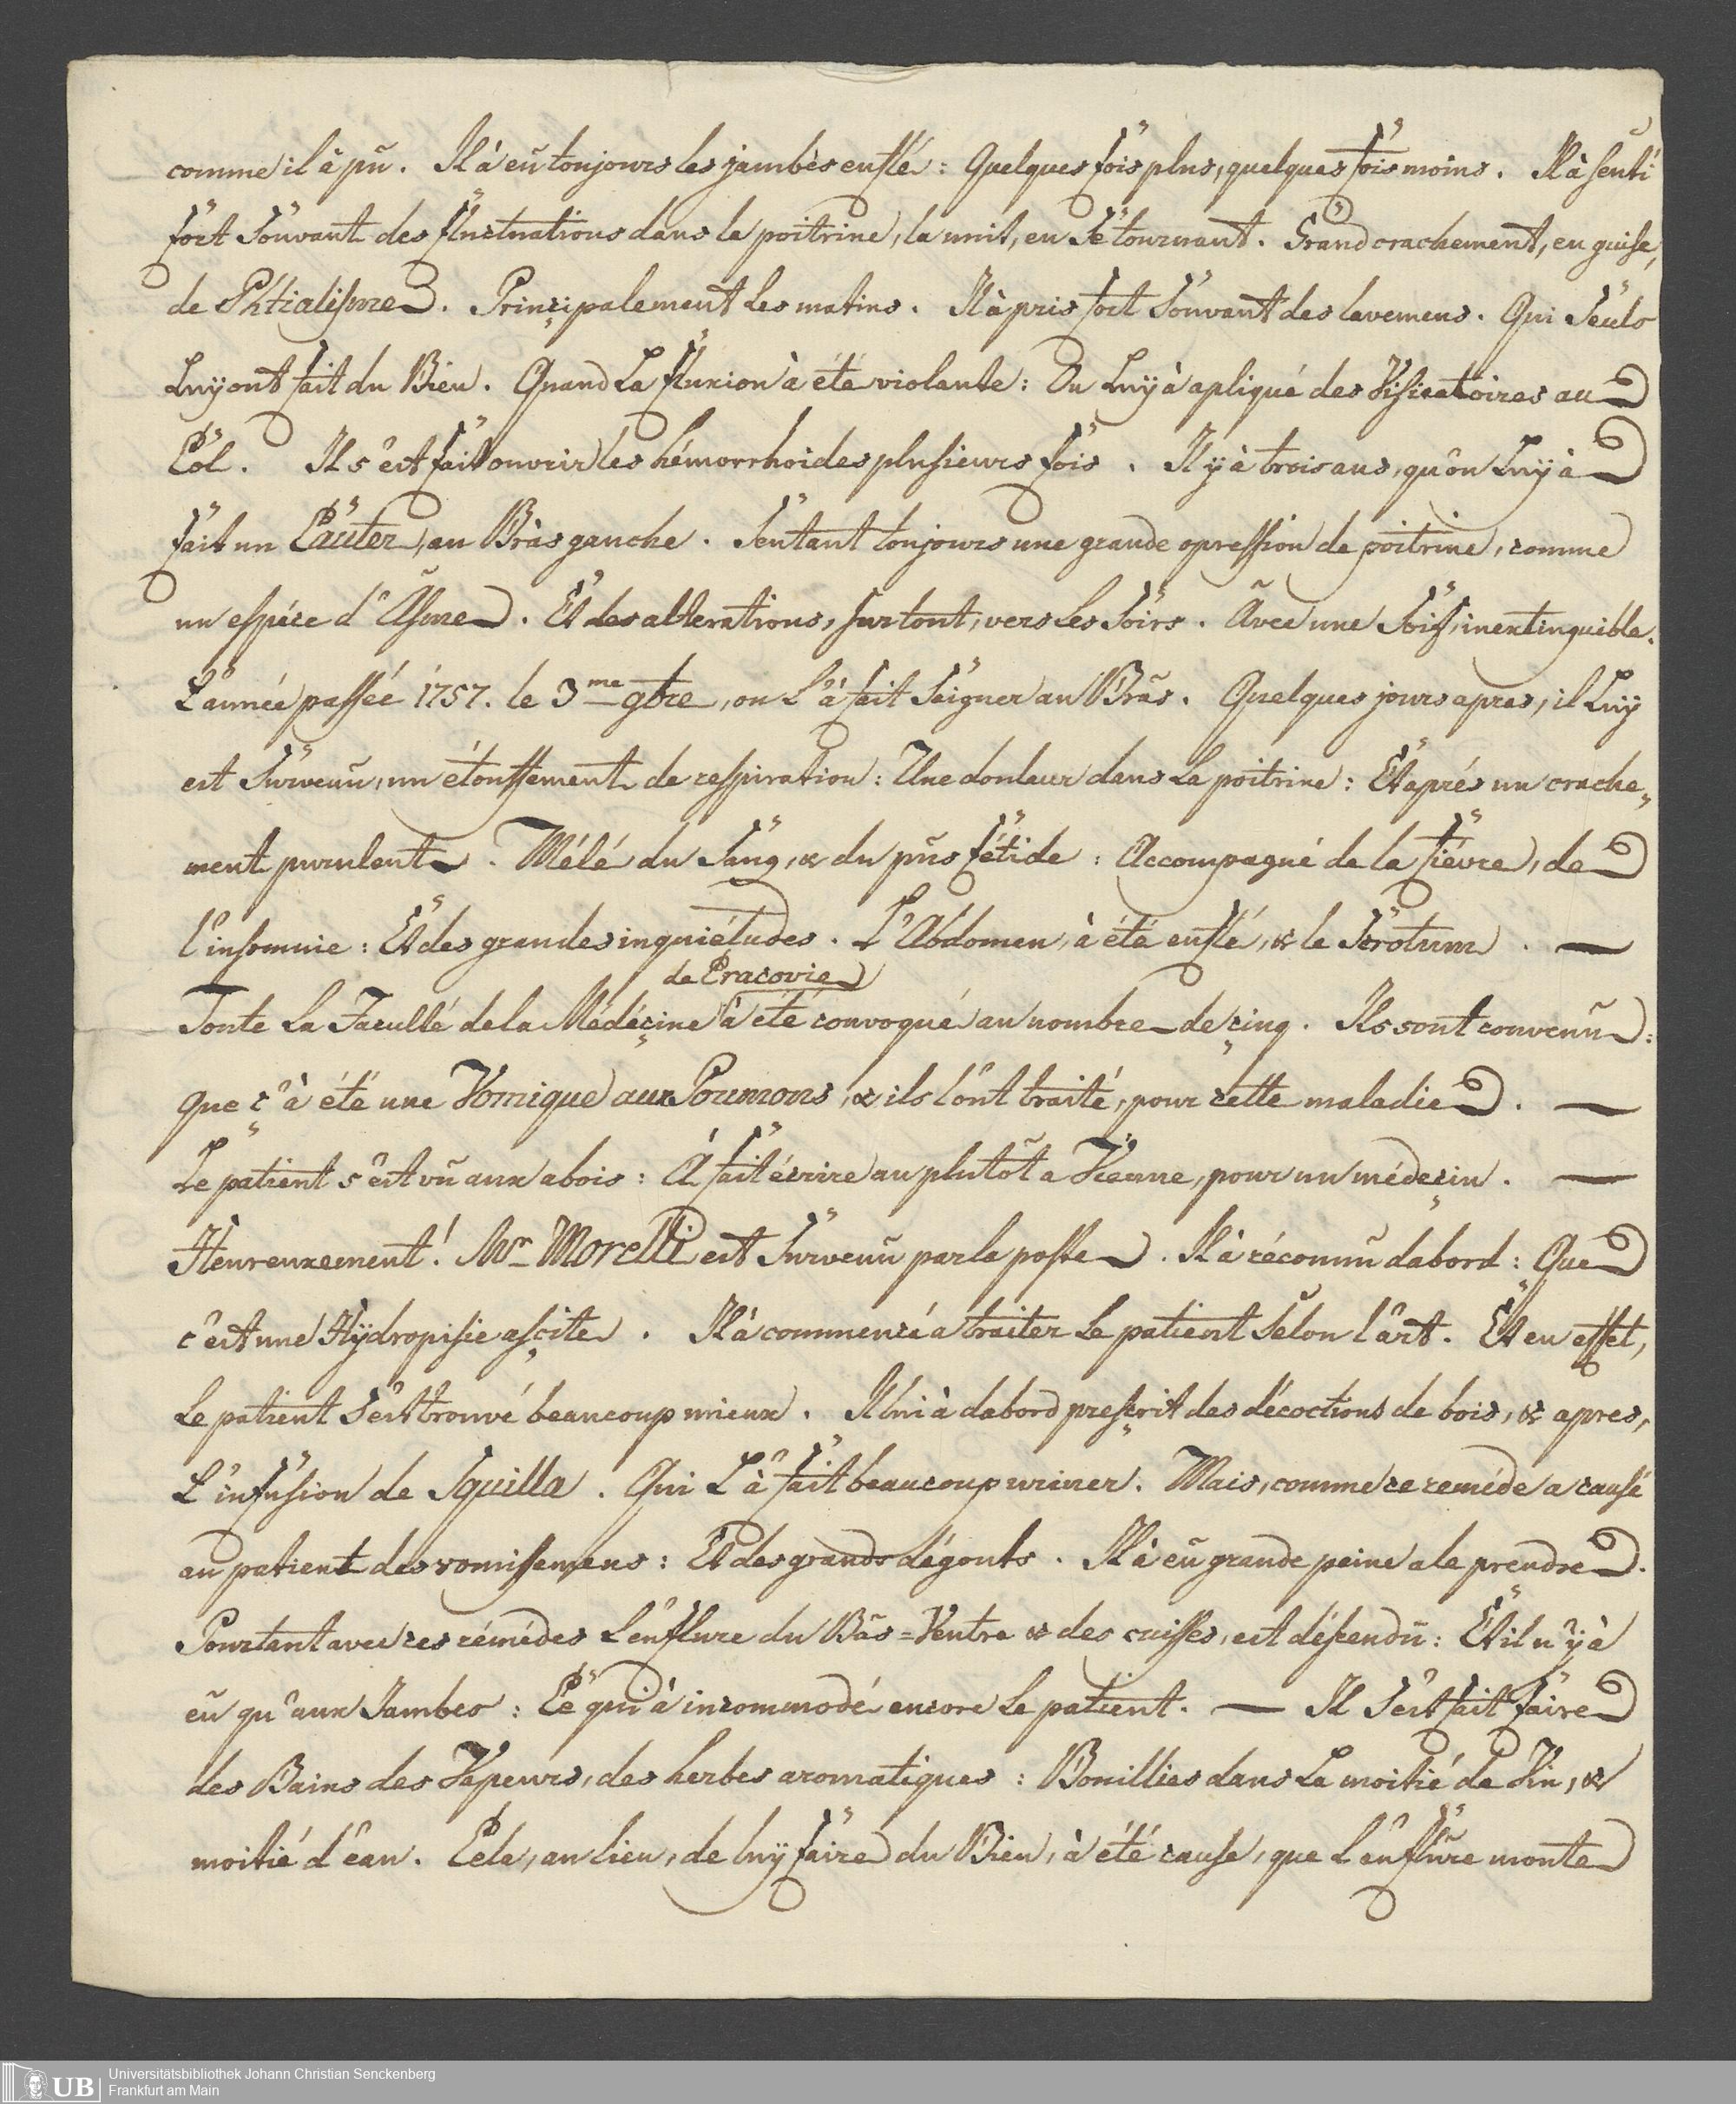 comme il à pũ. Il à eũ toujours les jambès enflé: Quelques fois plus, quelques fois moins. Il à senti
fort Souvant des fluctuations dans la poitrine, la nuit, en Sé tournant. Grand crachement, en guise,
de Phtialisme. Prinçipalement Les matins. Il à pris fort Souvant des lavemens. Qui Seuls
Luÿ ont fait du Bien. Quand La fluxion à été violante: On Luÿ à apliqué des Vissicatoires au
Col. Il s'est fait ouvrir les hémorrhoides plusieurs fois. Il ÿ à trois ans, qu'on Luÿ à
fait un Cauter, au Bràs gauche. Sentant toujours une grande opression de poitrine, comme
un espéce d'Asme. Et des alterations, sur tout, vers Les Soirs. Avec une Soif, inextinguible.
L'année passéé 1757. le 3me 9bre, on L'à fait Saigner au Brãs. Quelques jours apres, il Luÿ
est Survenũ, un étouffement de respiration: Une douleur dans La poitrine: Et aprés un crache„
ment purulent. Mélé du Sang, & du pũs fétide: Accompagné de la fiévre, de
l'insomnie: Et des grandes inquiétudes. L'Abdomen, à été enflé, & le Scrotum. —
de Cracovie
Toute La Faculté de la Médéçine à été convoqué au nombre de çinq. Ils sont convenũ:
que ç'à été une Vomique aux Poumons, & ils l'ont traité, pour cette maladie. —
Le patient s'est vũ aux abois: A fait écrire au plutôt a Vienne, pour un médeçin. —
Heureuxement! Mr Morelli est Survenũ par la poste. Il à réconnũ dabord: Que
c'est une Hÿdropisie asçite. Il à commencé a traiter Le patient Sélon l'art. Et en effet,
Le patient S'est trouvé beaucoup mieux. Il lui à dabord presçrit des décoctions de bois, & apres,
L'infusion de Squilla. Qui L'à fait beaucoup uriner. Mais, comme ce reméde a causé
au patient des vomissemens: Et des grands dégouts. Il à eũ grande peine a le prendre.
Pourtant avec ces rémédes L'enflure du Bãs=Ventre & des cuisses, est déscendũ: Et il n'ÿ à
eũ qu'aux Jambes: Cé qui à incommodé encore Le patient. — Il S'est fait faire
des Bains des Vapeurs, des herbes aromatiques: Bouillies dans La moitié de Vin, &
moitié d'eau. Cela, au lieu, de luÿ faire du Bien, à été cause, que L'enflũre monte
UB Universitätsbibliothek Johann Christian Senckenberg
Frankfurt am Main